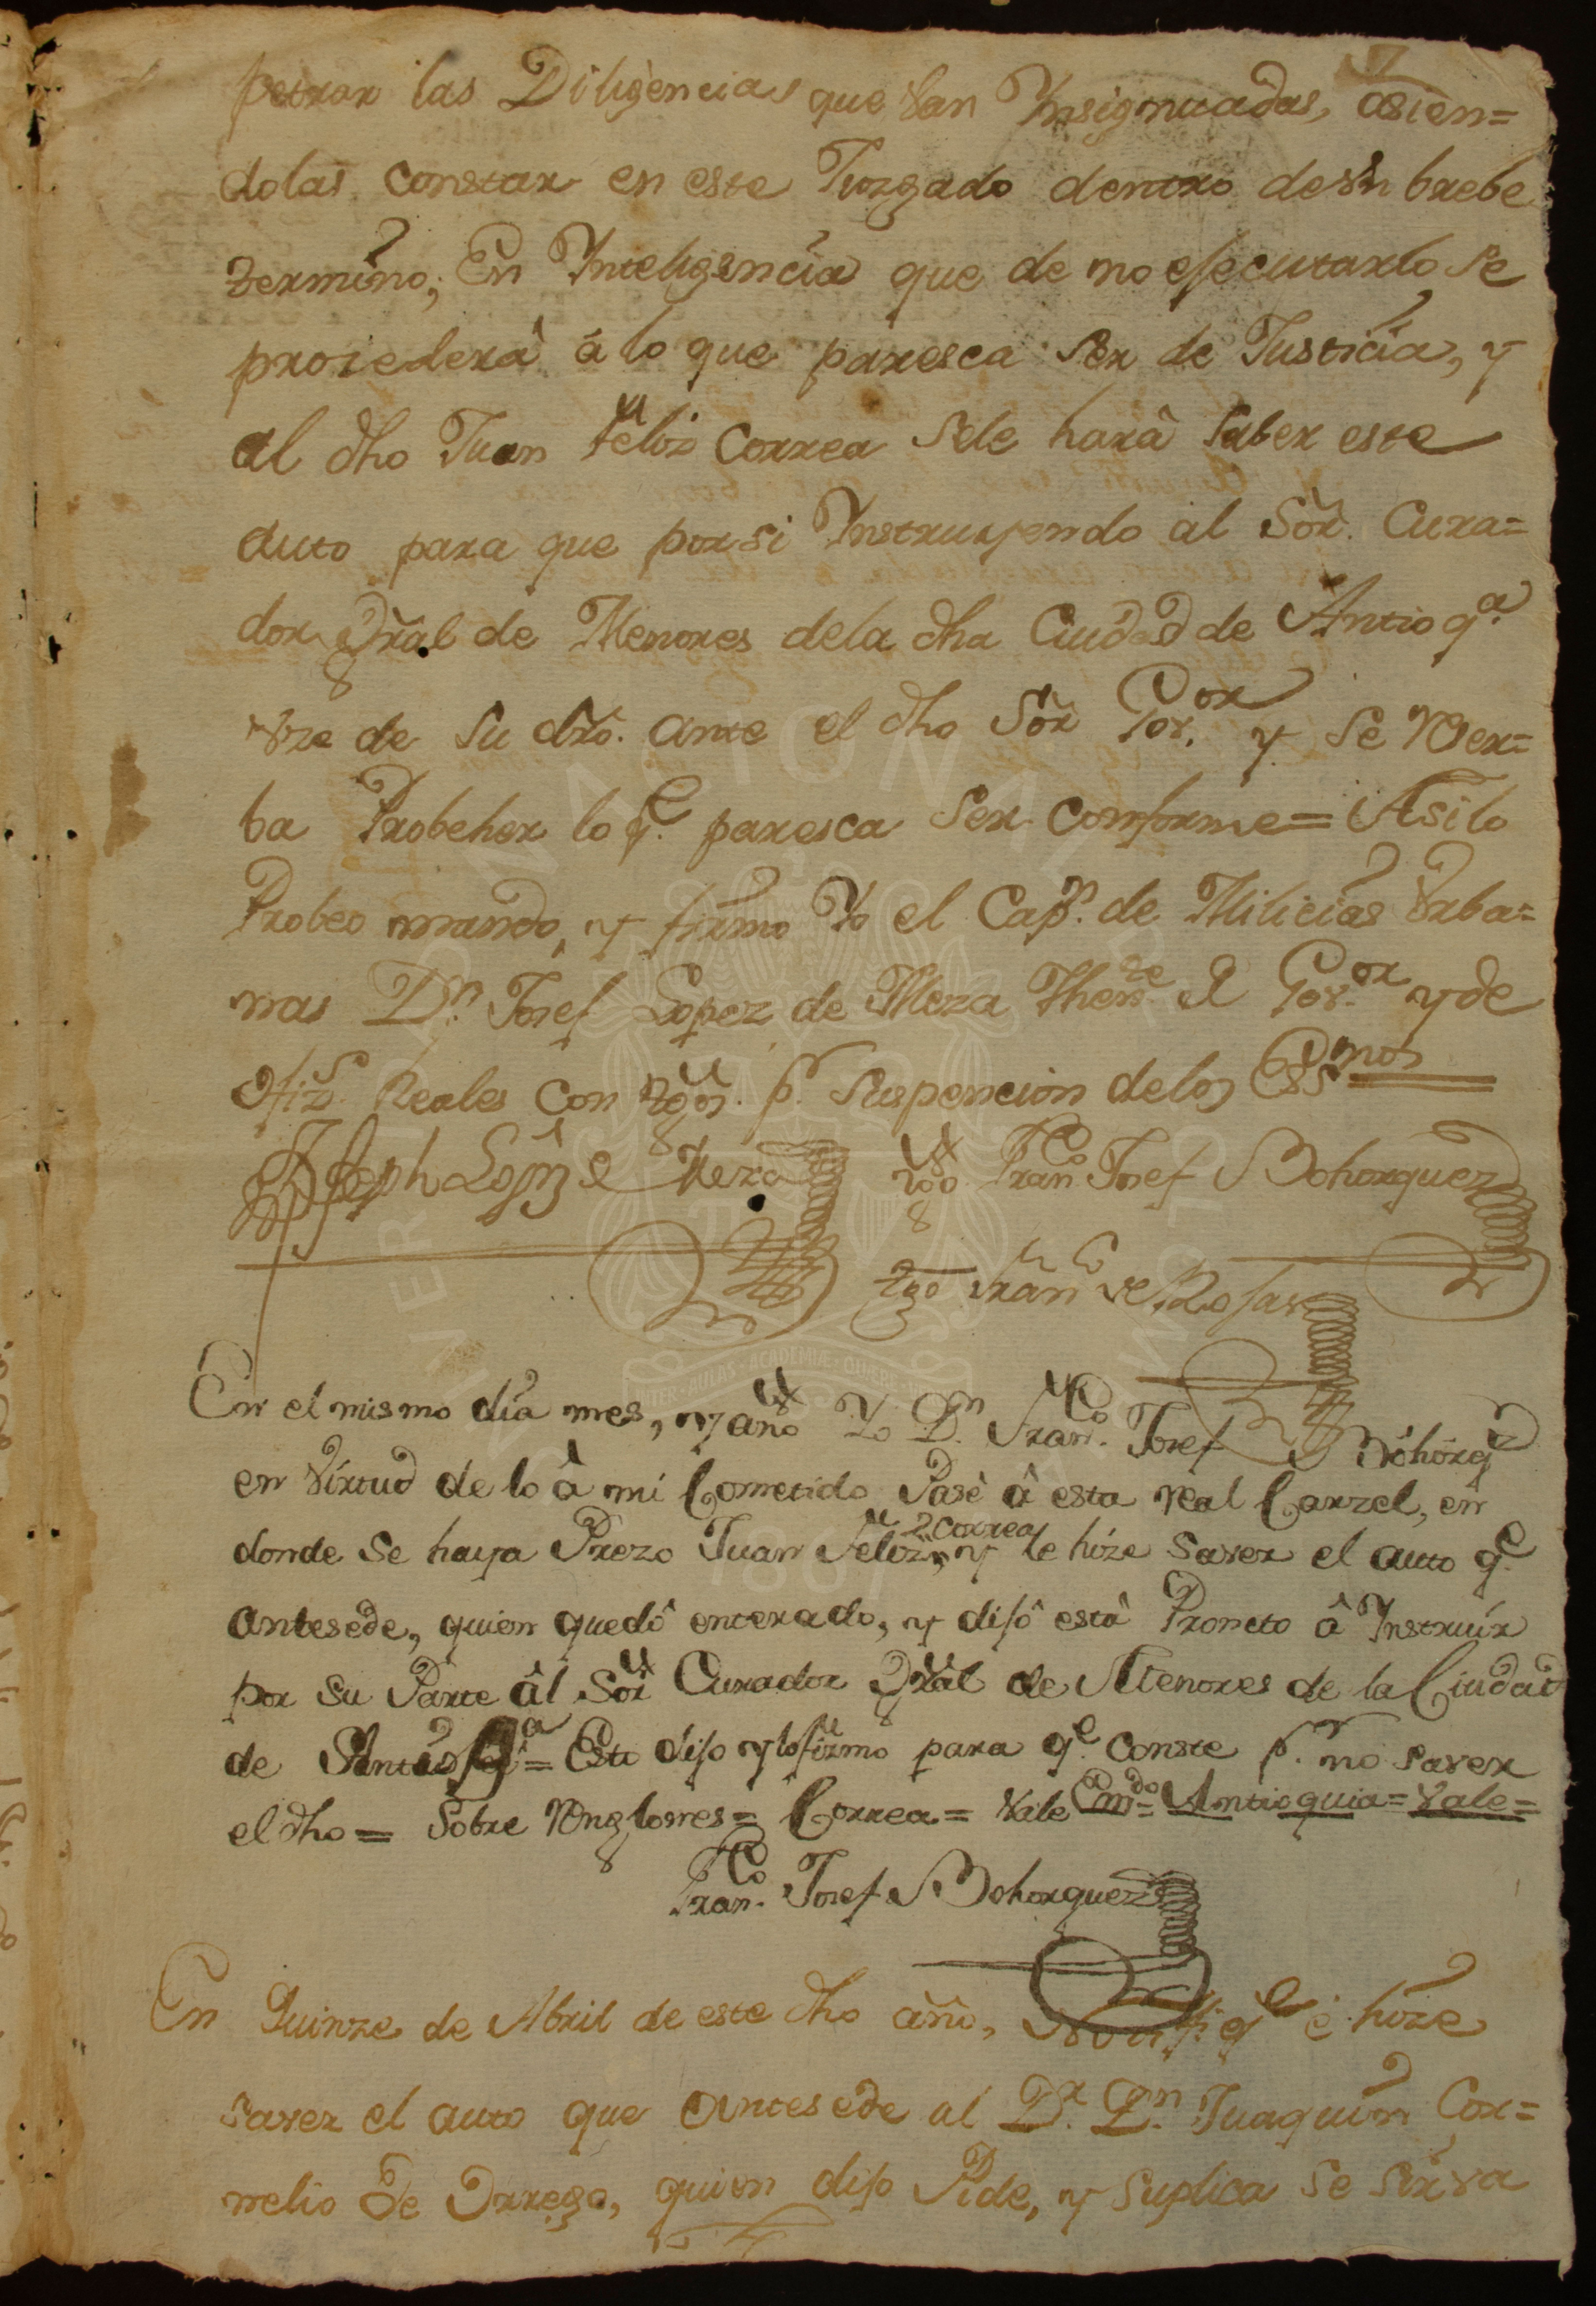 petrar las Diligèncias que van Ynsignuadas, asien=
dolas constar en este Juzgado dentro de vn brebe
termino; En Ynteligencia que de no ejecutarlo se
procederâ â lo que paresca ser de Justicia, y
al dho Juan Feliz Correa sele harâ saber este
auto para que porsi Ynstruyendo al Sõr. Cura=
dor Gral de Menores dela dha Ciudad de Antioqª.
vze de su dro. ante el dho Sõr Gov.or y se reser=
ba Probeher lo q.e paresca ser conforme= Asilo
Probeo mando, y firmo Yo el Cap.n de Milicias Vrba=
nas D.n Josef Lopez de Meza Then.te de Gov.or y de
ofiz.s Reales con tgos. p.r suspencion delos Essnos
Joseph Lopz de Meza tgo Fran.co Josef Bohorquez
tgo Fran.co de Rojas
En el mismo dia mes, y año Yo D.n Fran.co Josef Bohorqz
en virtud de lo â mi Cometido Pasè â esta real Carzel, en
donde se haya Prezo Juan Feliz, y le hize saver el auto q.e
Correa
antesede, quien quedô enterado, y dijô estâ Proncto â Ynstruir
por su Parte âl Sor Curador Gral de Menores de la Ciudad
de Antioqª= Esto dijo y lo firmo para q.e conste p.r no saver
el dho= Sobre Renglones= Correa= vale Enm.do= Antioquia= vale=
Fran.co Josef Bohorquez
En Quinze de Abril de este dho año, Notifiq.e è hize
saver el auto que antesede al D.r D.n Juaquin Cor=
nelio de Orrego, quien dijo Pide, y suplica se sirva